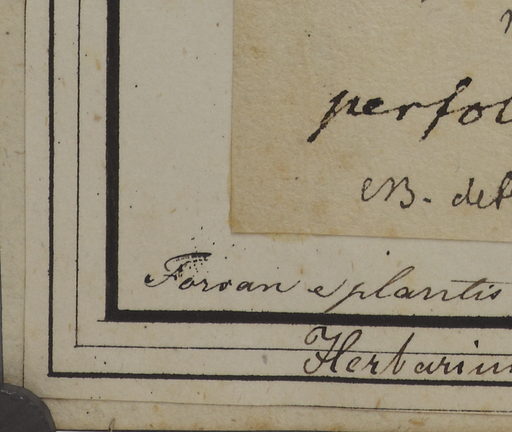 perfol
NB. det
Forsan e plantis
Herbarium